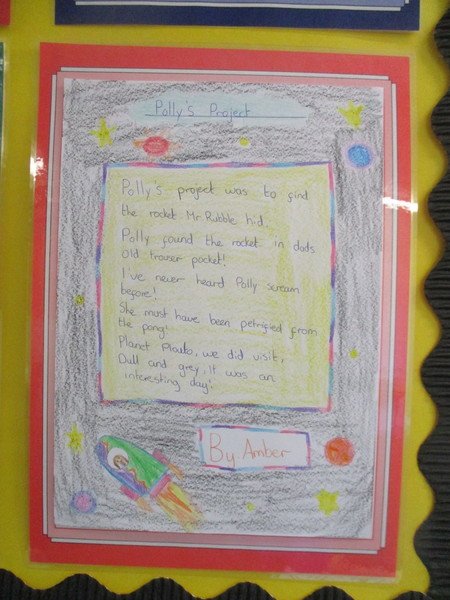 Polly's Project
Polly's project was to find
the rocket Mr Rubble hid.
Polly found the rocket in dads
old trouser pocket!
I've never heard Polly scream
before!
She must have been petrified from
the pong!
Planet Plauto, we did visit,
Dull and grey, It was an
interesting day!
By: Amber